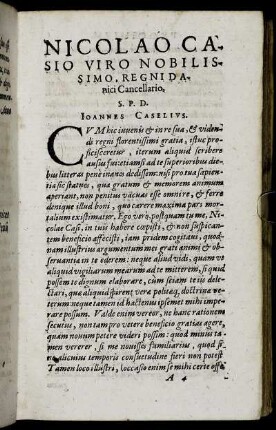 NICOLAO CA-
SIO VIRO NOBILIS-
SIMO, REGNI DA-
nici Cancellario,
S. P. D.
IOANNES CASELIUS.
CVM hic iuvenis & in re sua, & viden-
di regni florentissimi gratia, istuc pro-
ficisceretur, iterum aliquid scribere
ausus sum: etiamsi ad te superioribus die-
bus litteras pene inanes dedissem: nisi pro tua sapien-
tia sic statues, qua gratum & memorem animum
aperiant, non penitus vacuas esse omnire, & ferre
denique illud boni, quo carere maxima pars mor-
talium existimatur. Ego vero, postquam tu me, Ni-
colae Casi, in tuis habere coepisti, & non suspican-
tem beneficio affecisti, iam pridem cogitavi, quod-
nam illustrius argumentum mei grati animi & ob-
servantia in te ederem: neque aliud vidi, quam ut
aliquid vigiliarum mearum ad te mitterem, si quid
possem te dignum elaborare, cum sciam te iis dele-
ctari, quae aliquid spirent vera politaeque doctrina ve-
terum neque tamen id hactenus ipse met mihi impe-
rare possum. Valde enim vereor, ne hanc rationem
secutus, non tam pro vetere beneficio gratias agere,
quam novum petere videri possim: quod minus ta-
men vererer, si me novisses familiarius, quod si-
ne alicuius temporis consuetudine fieri non potest
Tamen loco illustri, & occasio enim se mihi certe offe
A 4